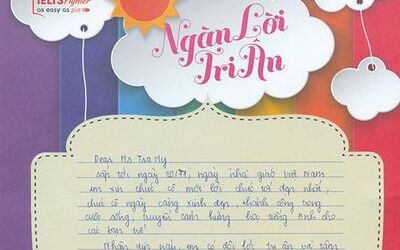 IELTS Fighter
as easy as pie
Ngàn Lời
Tri Ân
Dear Ms Tra My,
Sắp tới ngày 20/11, ngày nhà giáo Việt Nam
em xin chúc cô mọi lời chúc tốt đẹp nhất,
chúc cô ngày càng xinh đẹp, thành công trong
cuộc sống, truyền cảm hứng học tiếng Anh cho
các bạn trẻ!
Nhân dịp này, em có đôi lời tri ân và tặng